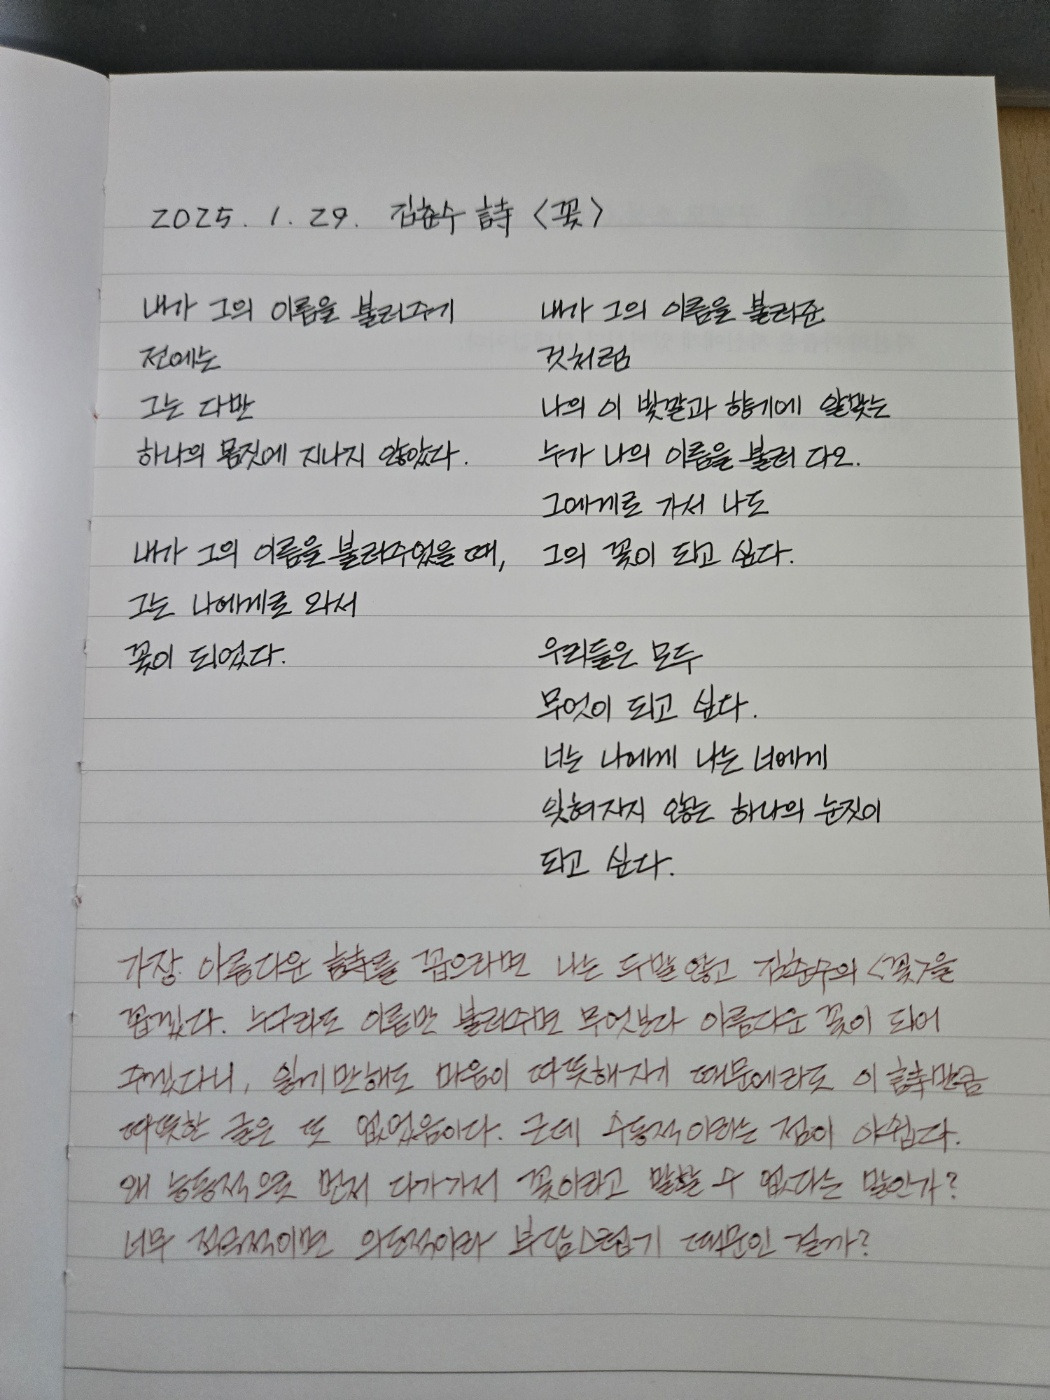 2025. 1. 29. 김춘수 詩 〈꽃〉
내가 그의 이름을 불러주기
전에는
그는 다만
하나의 몸짓에 지나지 않았다.
내가 그의 이름을 불러주었을 때,
그는 나에게로 와서
꽃이 되었다.
내가 그의 이름을 불러준
것처럼
나의 이 빛깔과 향기에 알맞는
누가 나의 이름을 불러 다오.
그에게로 가서 나도
그의 꽃이 되고 싶다.
우리들은 모두
무엇이 되고 싶다.
너는 나에게 나는 너에게
잊혀지지 않는 하나의 눈짓이
되고 싶다.
가장 아름다운 詩를 꼽으라면 나는 두말 않고 김춘수의 〈꽃〉을
꼽겠다. 누구라도 이름만 불러주면 무엇보다 아름다운 꽃이 되어
주겠다니, 읽기만해도 마음이 따뜻해지기 때문에라도 이 詩만큼
따뜻한 글은 또 없었음이다. 근데 수동적이라는 점이 아쉽다.
왜 능동적으로 먼저 다가가서 꽃이라고 말할 수 없다는 말인가?
너무 적극적이면 의도적이라 부담스럽기 때문인 걸까?